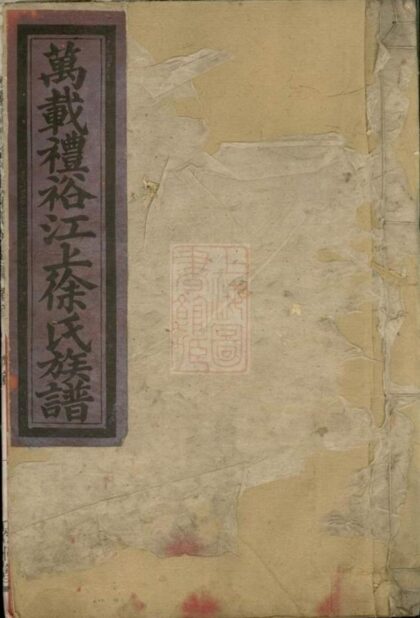 萬載禮裕江上徐氏族譜
上海圖書館藏